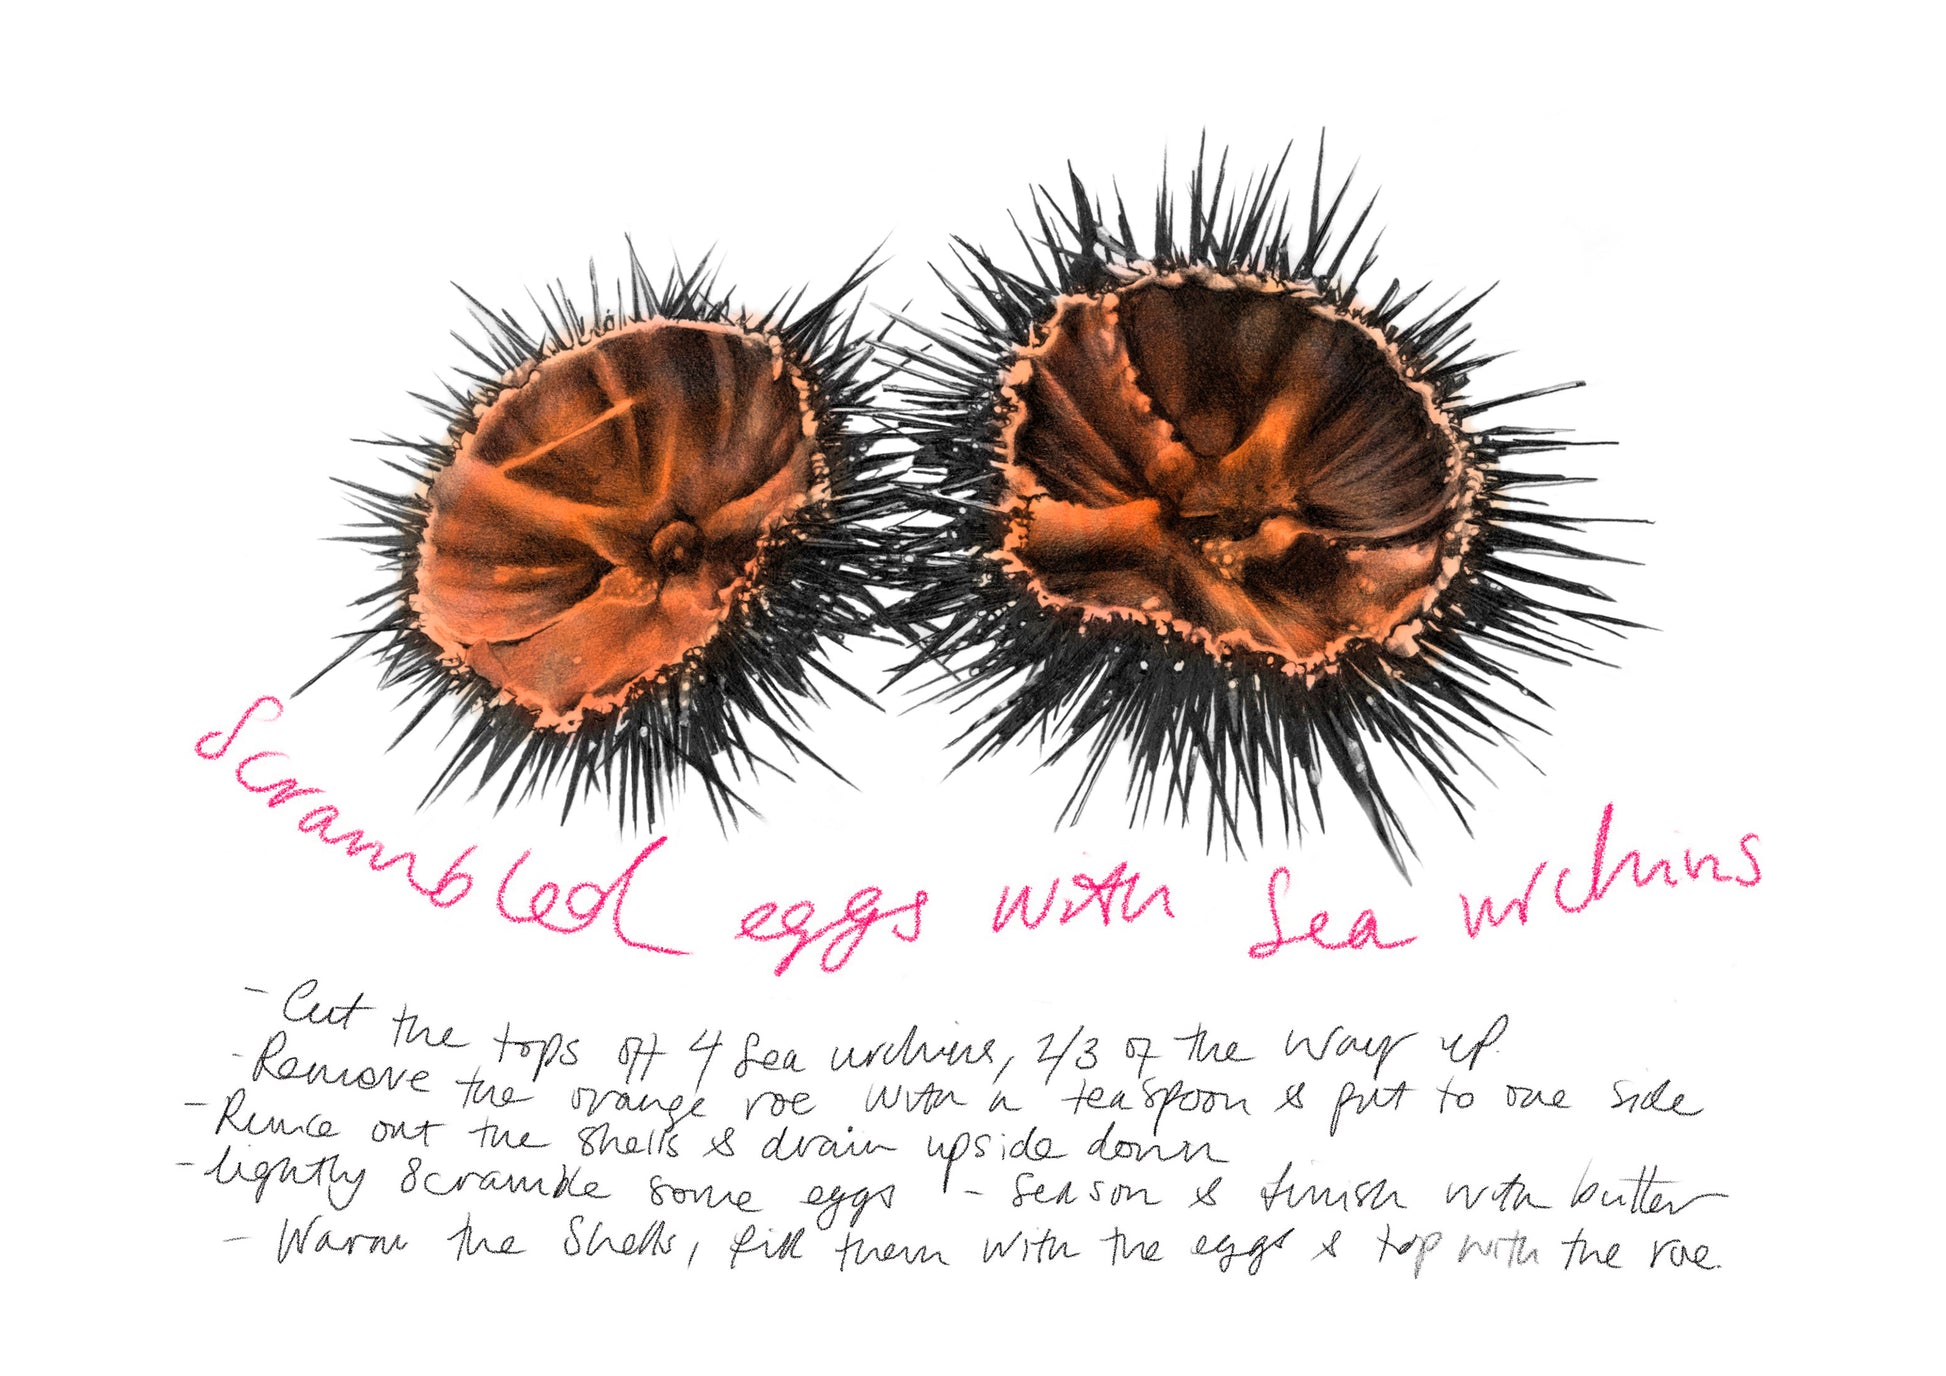 Scrambled eggs with Sea urchins
- Cut the tops off 4 Sea urchins, 2/3 of the way up.
- Remove the orange roe with a teaspoon & put to one side
- Rince out the shells & drain upside down
- lightly Scramble some eggs - Season & finish with butter
- Warm the Shells, fill them with the eggs & top with the roe.